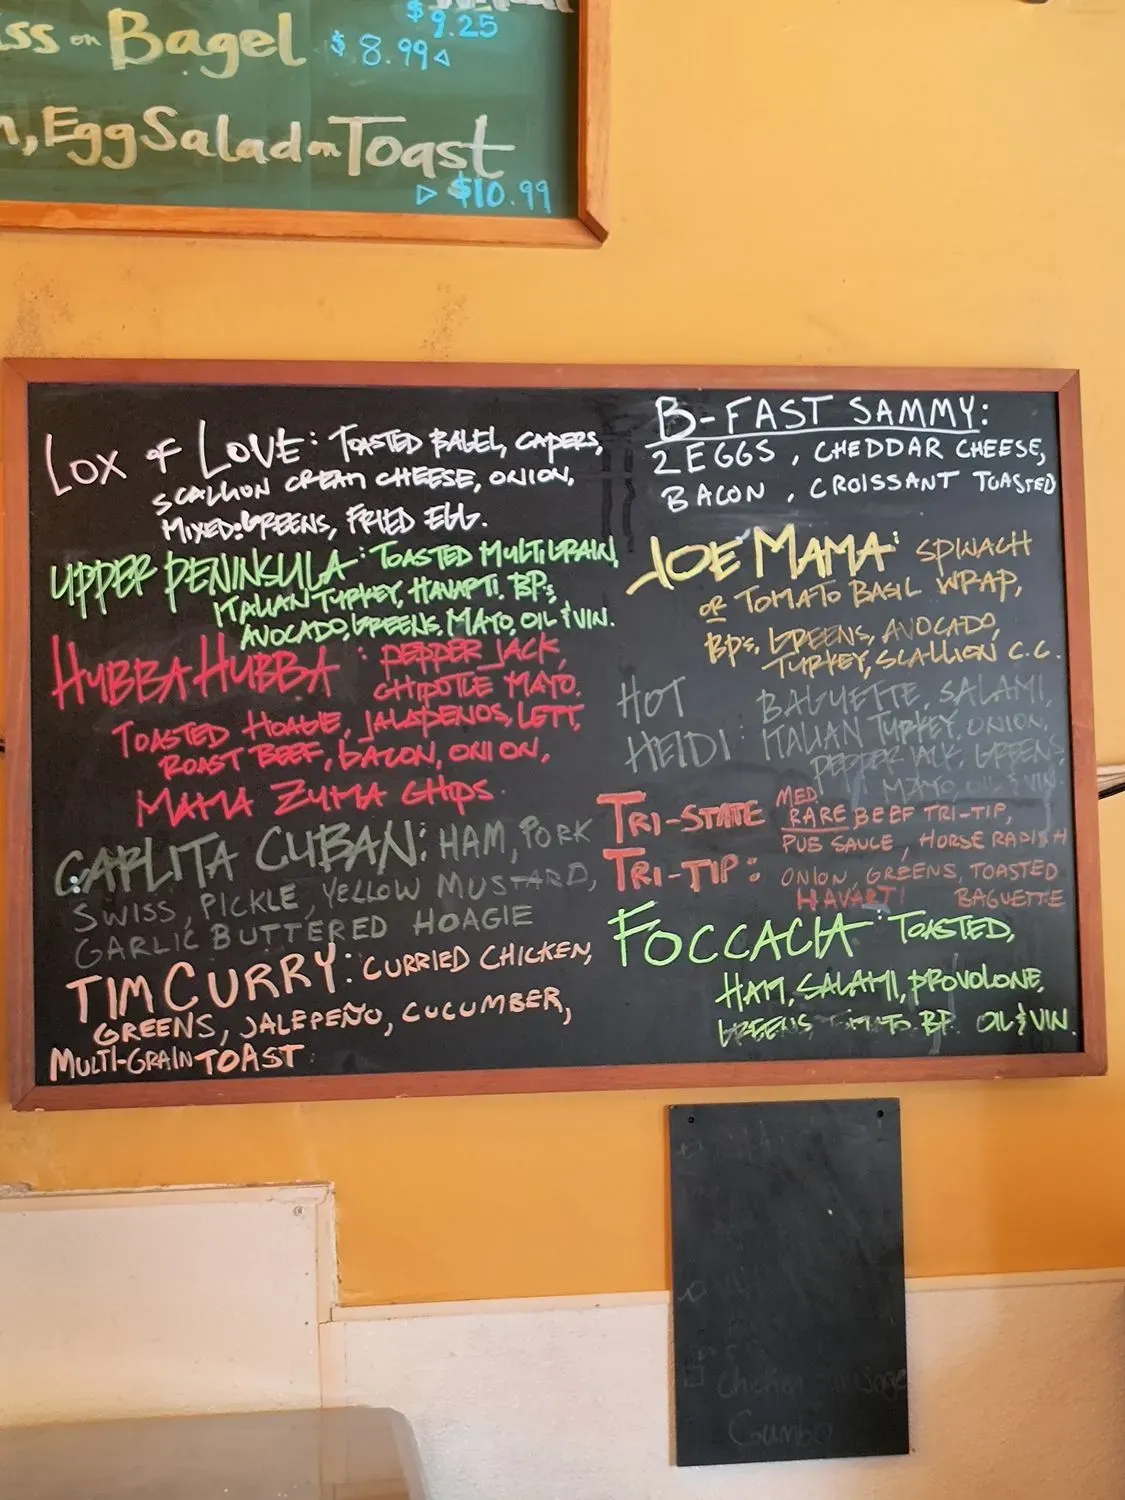 $9.25
iss on Bagel $8.99
, Egg Salad on Toast
$10.99
LOX of LOVE: TOASTED BAGEL, CAPERS,
SCALLION CREAM CHEESE, ONION,
MIXED GREENS, FRIED EGG.
UPPER PENINSULA: TOASTED MULTIGRAIN,
ITALIAN TURKEY, HAVARTI, BP's,
AVOCADO, GREENS, MAYO, OIL & VIN.
HUBBA HUBBA: PEPPER JACK,
CHIPOTLE MAYO.
TOASTED HOAGIE, JALAPENOS, LETT,
ROAST BEEF, BACON, ONION,
MAMA ZUMA CHIPS
CARLITA CUBAN: HAM, PORK
SWISS, PICKLE, YELLOW MUSTARD,
GARLIC BUTTERED HOAGIE
TIM CURRY: CURRIED CHICKEN,
GREENS, JALEPEÑO, CUCUMBER,
MULTI-GRAIN TOAST
B-FAST SAMMY:
2 EGGS, CHEDDAR CHEESE,
BACON, CROISSANT TOASTED
JOE MAMA: SPINACH
or TOMATO BASIL WRAP,
BP's, GREENS, AVOCADO,
TURKEY, SCALLION C.C.
HOT BAGUETTE, SALAMI,
HEIDI: ITALIAN TURKEY, ONION,
PEPPER JACK, GREENS,
MAYO, OIL & VIN
TRI-STATE MED. RARE BEEF TRI-TIP,
PUB SAUCE, HORSE RADISH
TRI-TIP: ONION, GREENS, TOASTED
HAVARTI BAGUETTE
FOCCACIA TOASTED,
HAM, SALAMI, PROVOLONE,
GREENS, TOMATO, BP. OIL & VIN.
Chicken
Gumbo